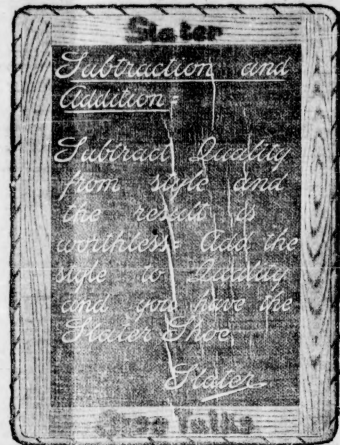 Slater
Subtraction and
Addition =
Subtract Quality
from style and
the result is
worthless= Add the
style to Quality
and you have the
Slater Shoe
Slater
Shoe Talks